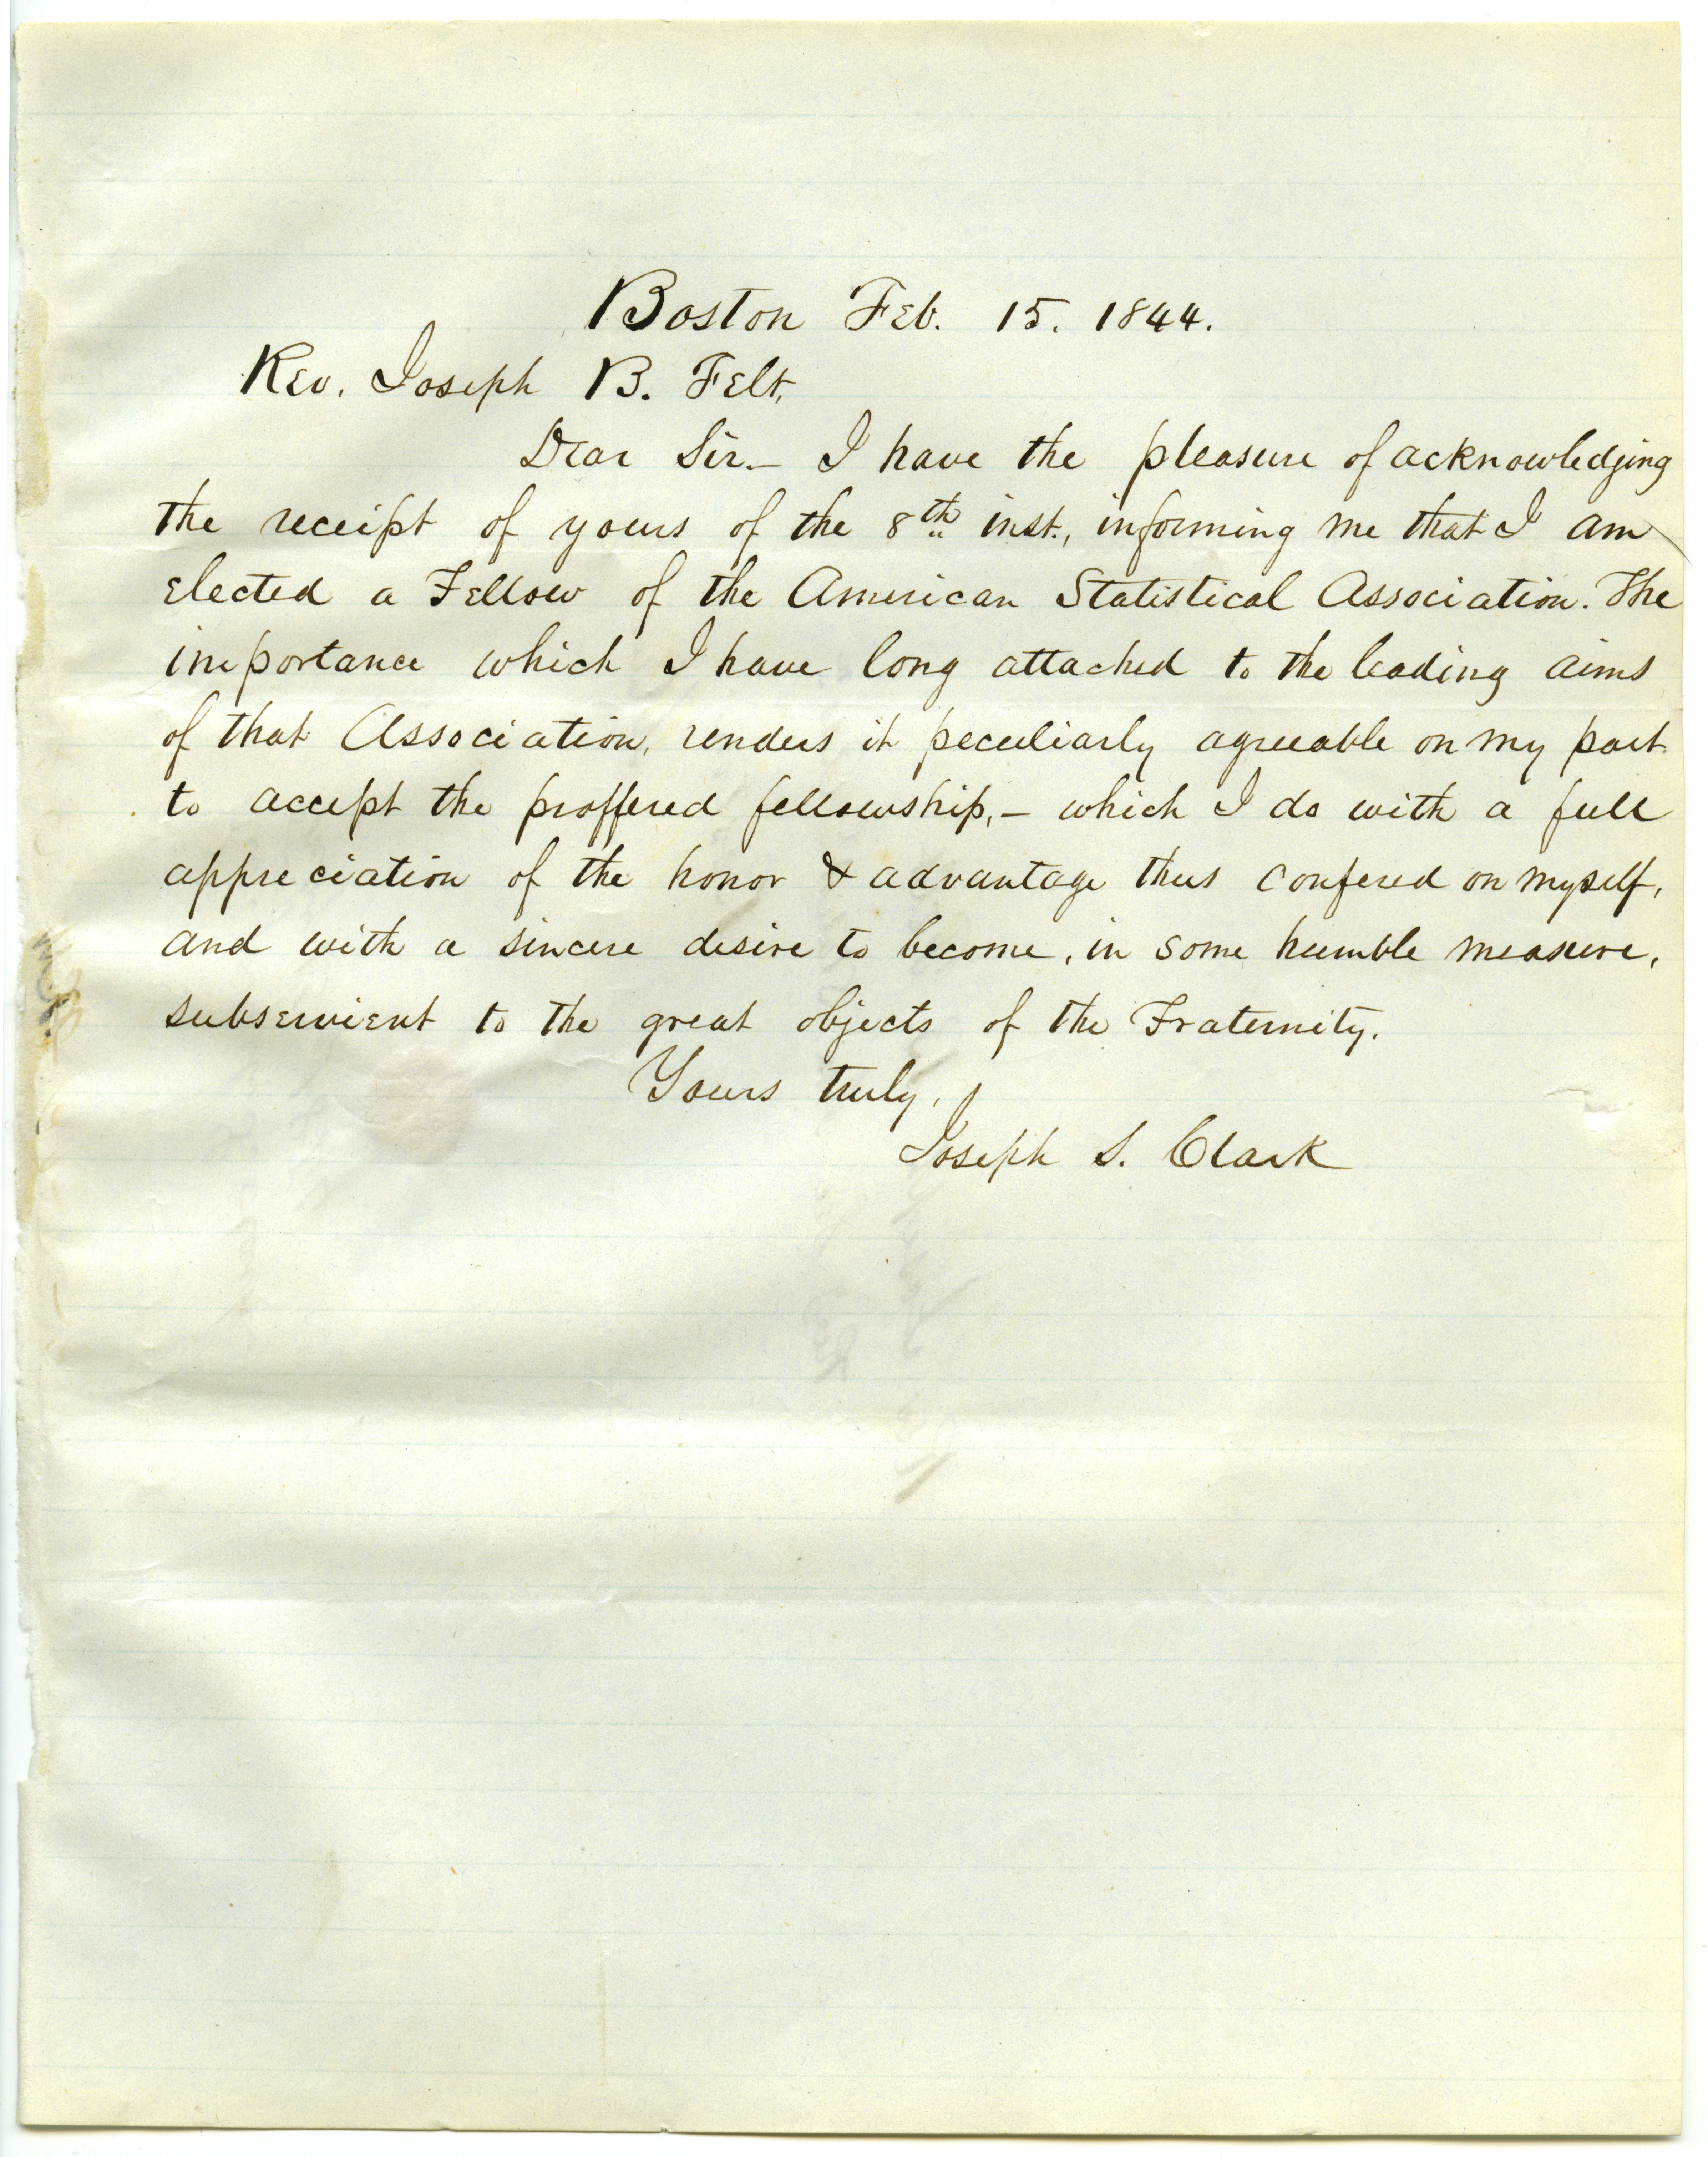 Boston Feb. 15. 1844.
Rev. Joseph B. Felt,
Dear Sir.— I have the pleasure of acknowledging
the receipt of yours of the 8th inst., informing me that I am
elected a Fellow of the American Statistical Association. The
importance which I have long attached to the leading aims
of that Association, renders it peculiarly agreeable on my part
to accept the proffered fellowship,— which I do with a full
appreciation of the honor & advantage thus confered on myself,
and with a sincere desire to become, in some humble measure,
subservient to the great objects of the Fraternity.
Yours truly,
Joseph S. Clark